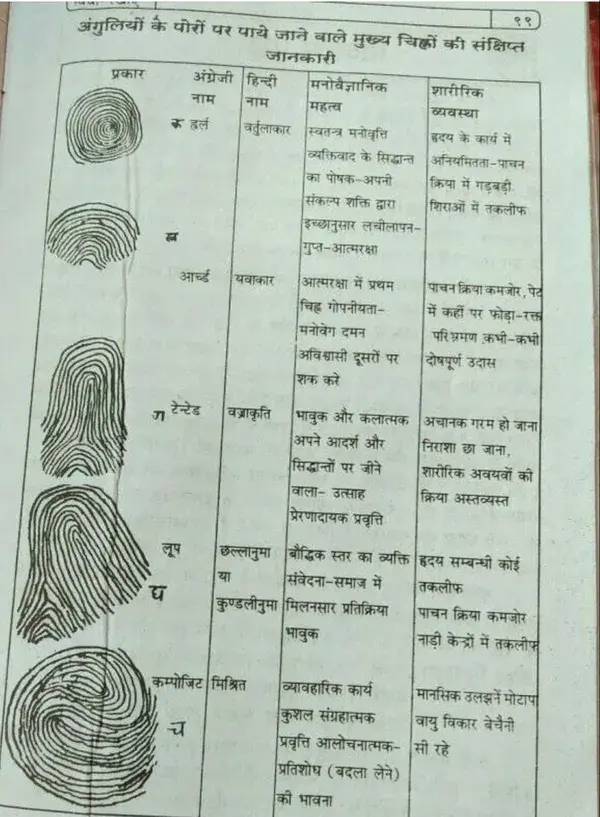 ९९
अंगुलियों के पोरों पर पाये जाने वाले मुख्य चिह्नों की संक्षिप्त
जानकारी
प्रकार अंग्रेजी नाम हिन्दी नाम मनोवैज्ञानिक महत्व शारीरिक व्यवस्था
क ह्वर्ल वर्तुलाकार स्वतन्त्र मनोवृत्ति हृदय के कार्य में
व्यक्तिवाद के सिद्धान्त अनियमितता-पाचन
का पोषक-अपनी क्रिया में गड़बड़ी
संकल्प शक्ति द्वारा शिराओं में तकलीफ
इच्छानुसार लचीलापन-
ख गुप्त-आत्मरक्षा
आर्च्ड यवाकार आत्मरक्षा में प्रथम पाचन क्रिया कमजोर, पेट
चिह्न गोपनीयता- में कहीं पर फोड़ा-रक्त
मनोवेग दमन परिभ्रमण कभी-कभी
अविश्वासी दूसरों पर दोषपूर्ण उदास
शक करे
ग टेन्टेड वज्राकृति भावुक और कलात्मक अचानक गरम हो जाना
अपने आदर्श और निराशा छा जाना,
सिद्धान्तों पर जीने शारीरिक अवयवों की
वाला- उत्साह क्रिया अस्तव्यस्त
प्रेरणादायक प्रवृत्ति
लूप छल्लानुमा बौद्धिक स्तर का व्यक्ति हृदय सम्बन्धी कोई
या संवेदना-समाज में तकलीफ
घ कुण्डलीनुमा मिलनसार प्रतिक्रिया पाचन क्रिया कमजोर
भावुक नाड़ी केन्द्रों में तकलीफ
कम्पोजिट मिश्रित व्यावहारिक कार्य मानसिक उलझनें मोटापा
च कुशल संग्रहात्मक वायु विकार बेचैनी
प्रवृत्ति आलोचनात्मक- सी रहे
प्रतिशोध (बदला लेने)
की भावना